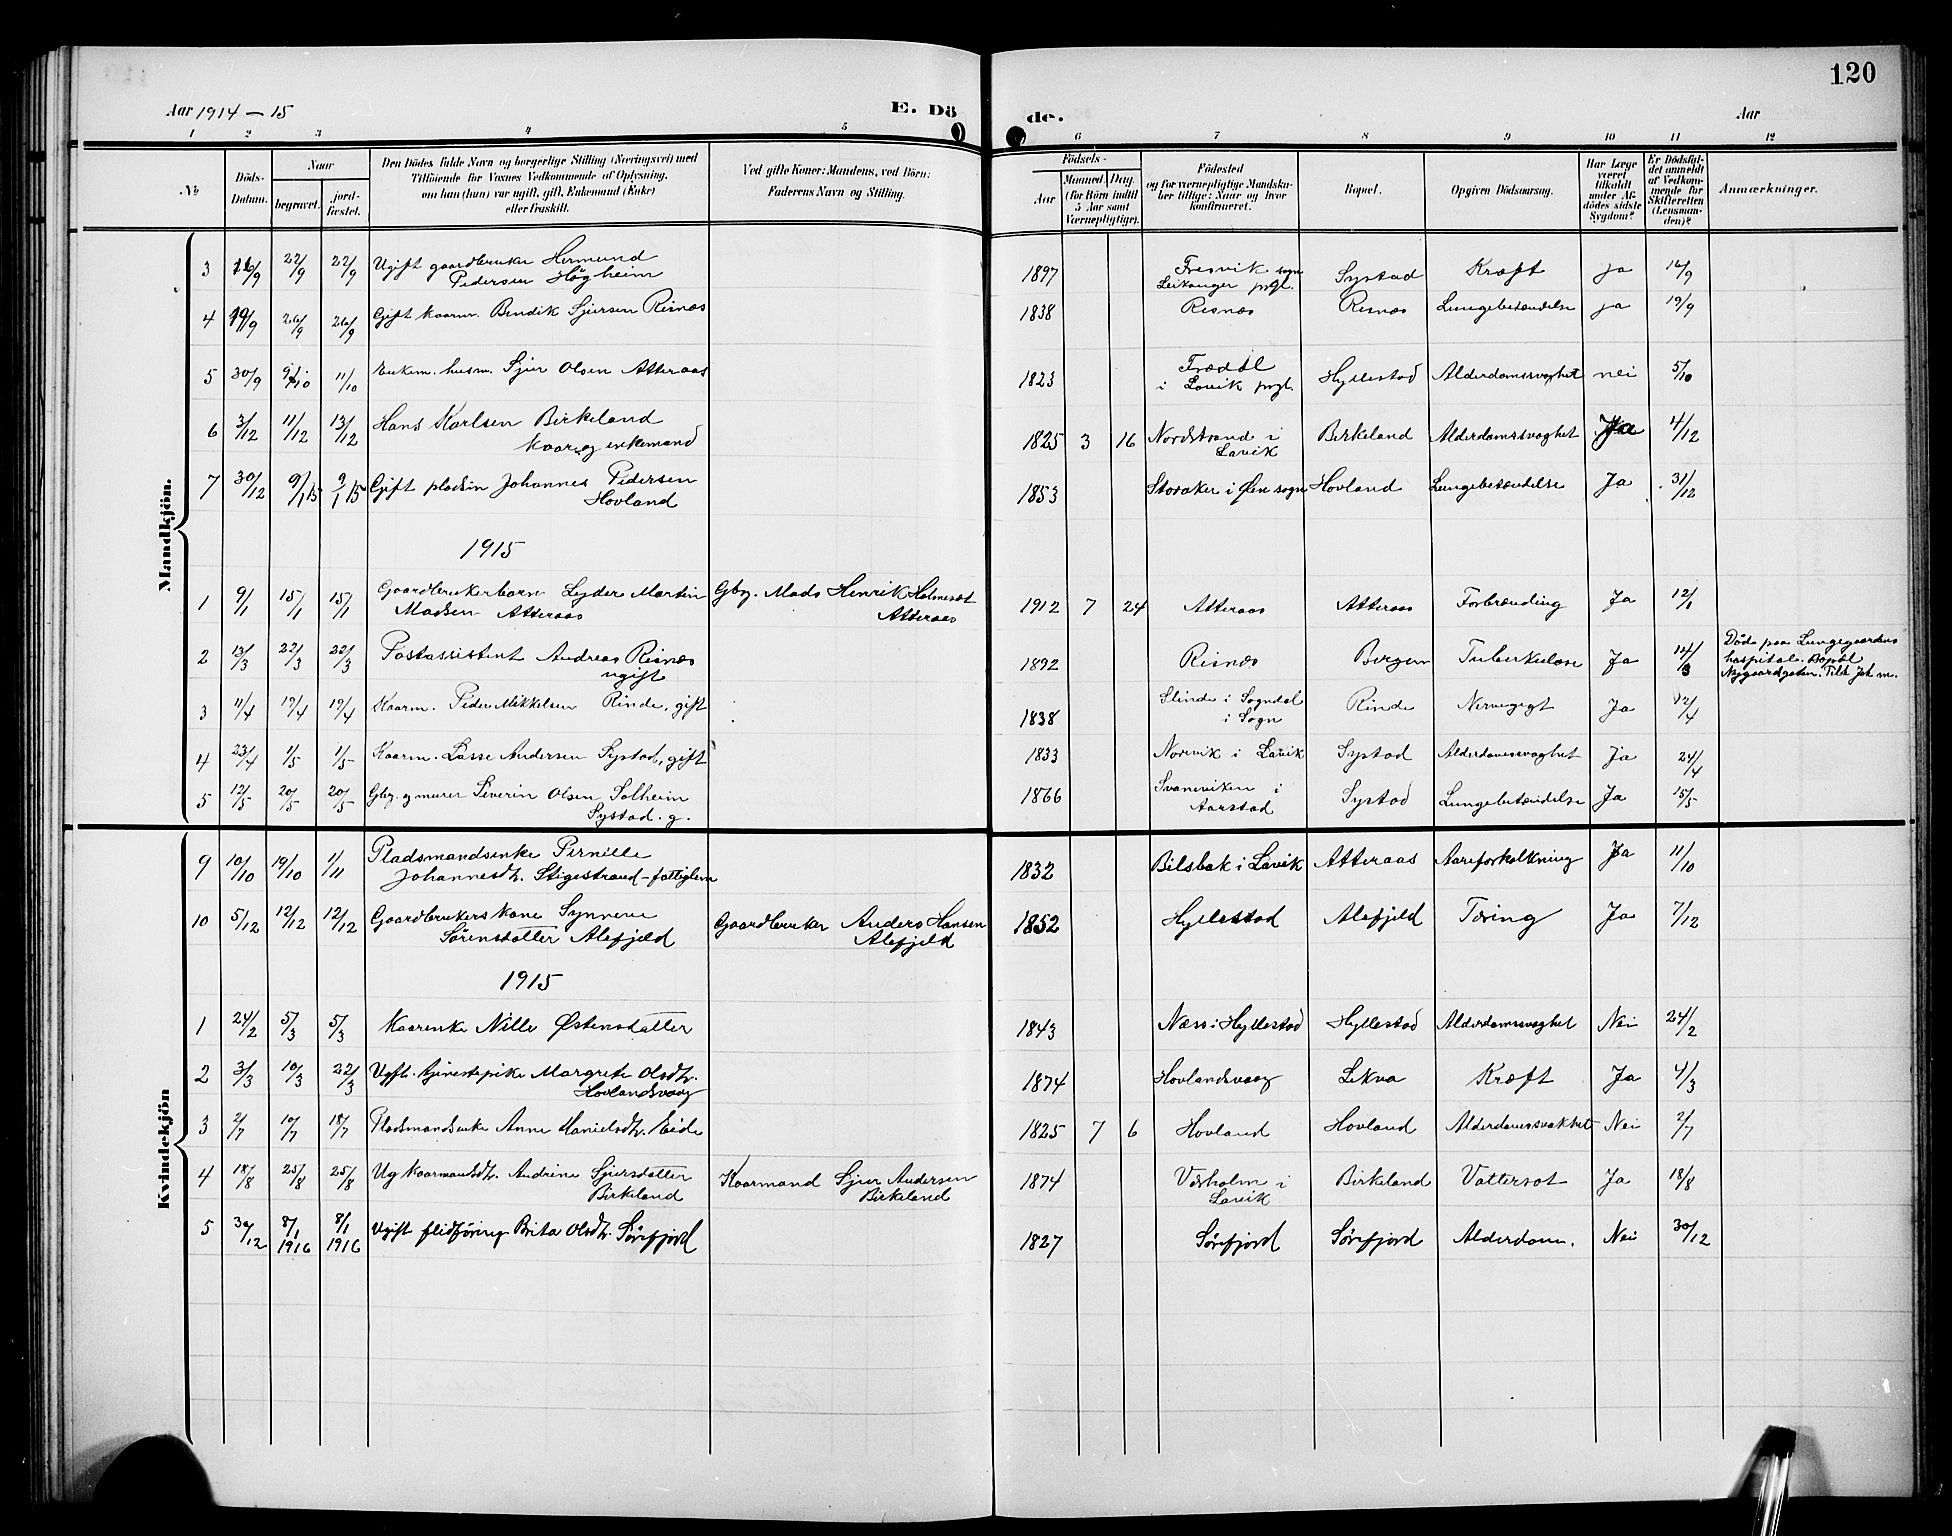 120
Aar 1914 – 15
E. Dö de.
Aar
1 2 3 4 5 6 7 8 9 10 11 12
No
Döds-Datum.
Naar
begravet.
jord-fæstet.
Den Dödes fulde Navn og borgerlige Stilling (Næringsvei) med
Tilföiende for Voxnes Vedkommende af Oplysning,
om han (hun) var ugift, gift, Enkemand (Enke)
eller fraskilt.
Ved gifte Koner: Mandens, ved Börn:
Faderens Navn og Stilling.
Födsels-
Aar
Maaned Dag
(for Börn indtil
5 Aar samt
Værnepligtige).
Födested
og for værnepligtige Mandska-
ber tillige: Naar og hvor
konfirmeret.
Bopæl.
Opgiven Dödsaarsag.
Har Læge
været
tilkaldt
under Af-
dödes sidste
Sygdom?
Er Dödsfal-
det anmeldt
af Vedkom-
mende for
Skifteretten
(Lensman-
den)?
Anmærkninger.
Mandkjön.
3 16/9 22/9 22/9 Ugift gaardbruker Hermund
Pedersen Høgheim
1897 Fresvik sogn
Leikanger prgl. Systad Kræft ja 16/9
4 19/9 26/9 26/9 Gift kaarm. Bendik Sjursen Risnes
1838 Risnes Risnes Lungebetændelse ja 19/9
5 30/9 9/10 11/10 Enkem. husm. Sjur Olsen Atteraas
1823
i Lavik prgl. Hyllestad Alderdomssvaghet nei 5/10
6 3/12 11/12 13/12 Hans Karlsen Birkeland
kaar og enkemand
1825 3 16 Nordstrand i
Lavik Birkeland Alderdomssvaghet Ja 4/12
7 30/12 9/1 15 9/1 15 Gift pladsm Johannes Pedersen
Hovland
1853 Storaker i Ølen sogn Hovland Lungebetændelse Ja 31/12
1915
1 9/1 15/1 15/1 Gaardbrukerbarn Lyder Martin
Madsen Atteraas
Gbr. Mads Henrik Holmeset
Atteraas
1912 7 24 Atteraas Atteraas Forbrænding Ja 12/1
2 13/3 22/3 22/3 Postassistent Andreas Risnes
ugift
1892 Risnes Bergen Tuberkulose Ja 14/3
Døde paa Lungegaardens
hospital. Bopæl
Nygaardsgaten.
3 11/4 19/4 19/4 Kaarm. Peder Mikkelsen Rinde, gift
1838 Slinde i Sogndal
i Sogn Rinde Nervegigt Ja 12/4
4 23/4 1/5 1/5 Kaarm. Lasse Andersen Systad, gift
1833 Norevik i Lavik Systad Alderdomssvaghet Ja 24/4
5 12/5 20/5 20/5 Gbr. og murer Severin Olsen Solheim
Systad. g.
1866 Svaneviken i
Aarstad Systad Lungebetændelse Ja 15/5
Kvindekjön
9 10/10 19/10 1/11 Pladsmandsenke Pernille
Johannesdtr. Stigestrand – fattiglem
1832 Bilsbak i Lavik Atteraas Aareforkalkning Ja 11/10
10 5/12 12/12 12/12 Gaardbrukers kone Synneve
Sørensdatter Alefjeld
Gaardbruker Anders Hansen
Alefjeld
1852 Hyllestad Alefjeld Tæring Ja 7/12
1915
1 24/2 5/3 5/3 Kaarenke Nille Østensdatter
1843 Næss i Hyllestad Hyllestad Alderdomssvaghet Nei 24/2
2 3/3 10/3 22/3 Ugift. tjenestepike Margrete Olsdtr.
Hovlandsvaag
1874 Hovlandsvaag Lekva Kræft Ja 4/3
3 2/7 10/7 18/7 Pladsmandsenke Anne Danielsdtr. Eide
1825 7 6 Hovland Hovland Alderdomssvakhet Nei 2/7
4 18/8 25/8 25/8 Ug kaarmandsdtr. Andrine Sjursdatter
Birkeland
Kaarmand Sjur Andersen
Birkeland
1874 Værholm i
Lavik Birkeland Vattersot Ja 18/8
5 30/12 8/1 1916 8/1 1916 Ugift flidføring Brita Olsdtr. Sørefjord
1827 Sørefjord Sørefjord Alderdom. Nei 30/12